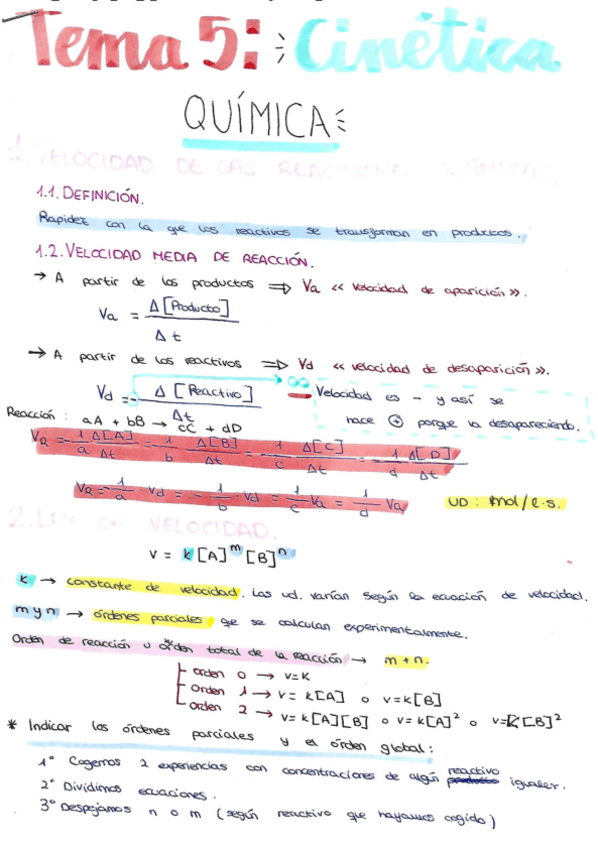 Tema 5: Cinética
QUÍMICA
1. VELOCIDAD DE LAS REACCIONES QUÍMICAS.
1.1. DEFINICIÓN.
Rapidez con la que los reactivos se transforman en productos.
1.2. VELOCIDAD MEDIA DE REACCIÓN.
→ A partir de los productos ⇒ Va « velocidad de aparición ».
Va = Δ[Producto] / Δt
→ A partir de los reactivos ⇒ Vd « velocidad de desaparición ».
Vd = - Δ[Reactivo] / Δt
Velocidad es - y así se
hace ⊕ porque la desapareciendo.
Reacción : aA + bB → cC + dD
VR = - 1/a Δ[A]/Δt = - 1/b Δ[B]/Δt = 1/c Δ[C]/Δt = 1/d Δ[D]/Δt
VR = - 1/a · Vd = - 1/b · Vd = 1/c Va = 1/d Va
UD : mol/l·s.
2. LEY DE VELOCIDAD.
v = k[A]^m [B]^n
k → constante de velocidad. Las ud. varían según la ecuación de velocidad.
m y n → órdenes parciales que se calculan experimentalmente.
Orden de reacción u orden total de la reacción → m + n.
orden 0 → v=k
orden 1 → v= k[A] o v=k[B]
orden 2 → v= k[A][B] o v= k[A]² o v=k[B]²
* Indicar los órdenes parciales y el órden global:
1º Cogemos 2 experiencias con concentraciones de algún reactivo iguales.
2º Dividimos ecuaciones.
3º Despejamos n o m (según reactivo que hayamos cogido)